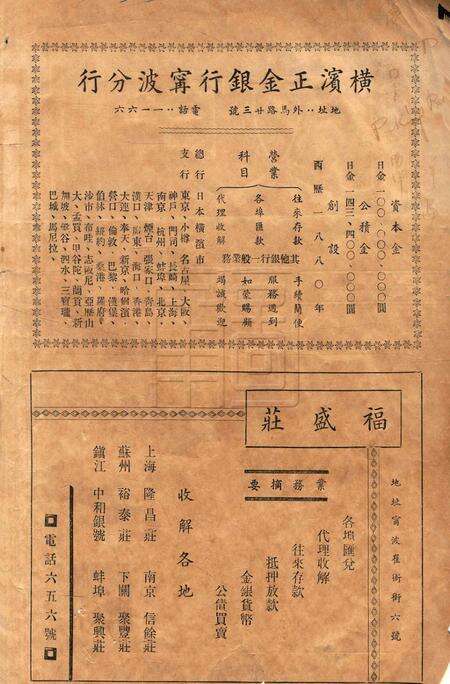 橫濱正金銀行甯波分行
地址：外馬路廿三號　電話：一一六六
資本金
日金一〇〇、〇〇〇、〇〇〇圓
公積金
日金一四三、四〇〇、〇〇〇圓
創設
西歷一八八〇年
營業科目
往來存款　手續簡便
各埠匯款　服務週到
代理收解　如蒙賜顧
其他銀行一般業務　竭誠歡迎
總行　日本橫濱市
支行　東京、小樽、名古屋、大阪
神戶、門司、長崎、上海
南京、杭州、蚌埠、北京、
天津、煙台、張家口、青島
漢口、廣東、海口、香港
大連、奉天、新京、哈爾濱
營口、倫敦、巴黎、漢堡
伯林、紐約、桑港、羅府
沙市、布哇、志殿尼、亞歷山
大、孟買、甲谷陀、蘭貢、新
加坡、盤谷、泗水、三寶壠、
巴城、馬尼拉、
福盛莊
地址甯波崔衙街六號
業務摘要
各埠匯兌
代理收解
往來存款
抵押放款
金銀貨幣
公債買賣
收解各地
上海　隆昌莊　南京　信餘莊
蘇州　裕泰莊　下關　聚豐莊
鎮江　中和銀號　蚌埠　聚興莊
電話六五六號